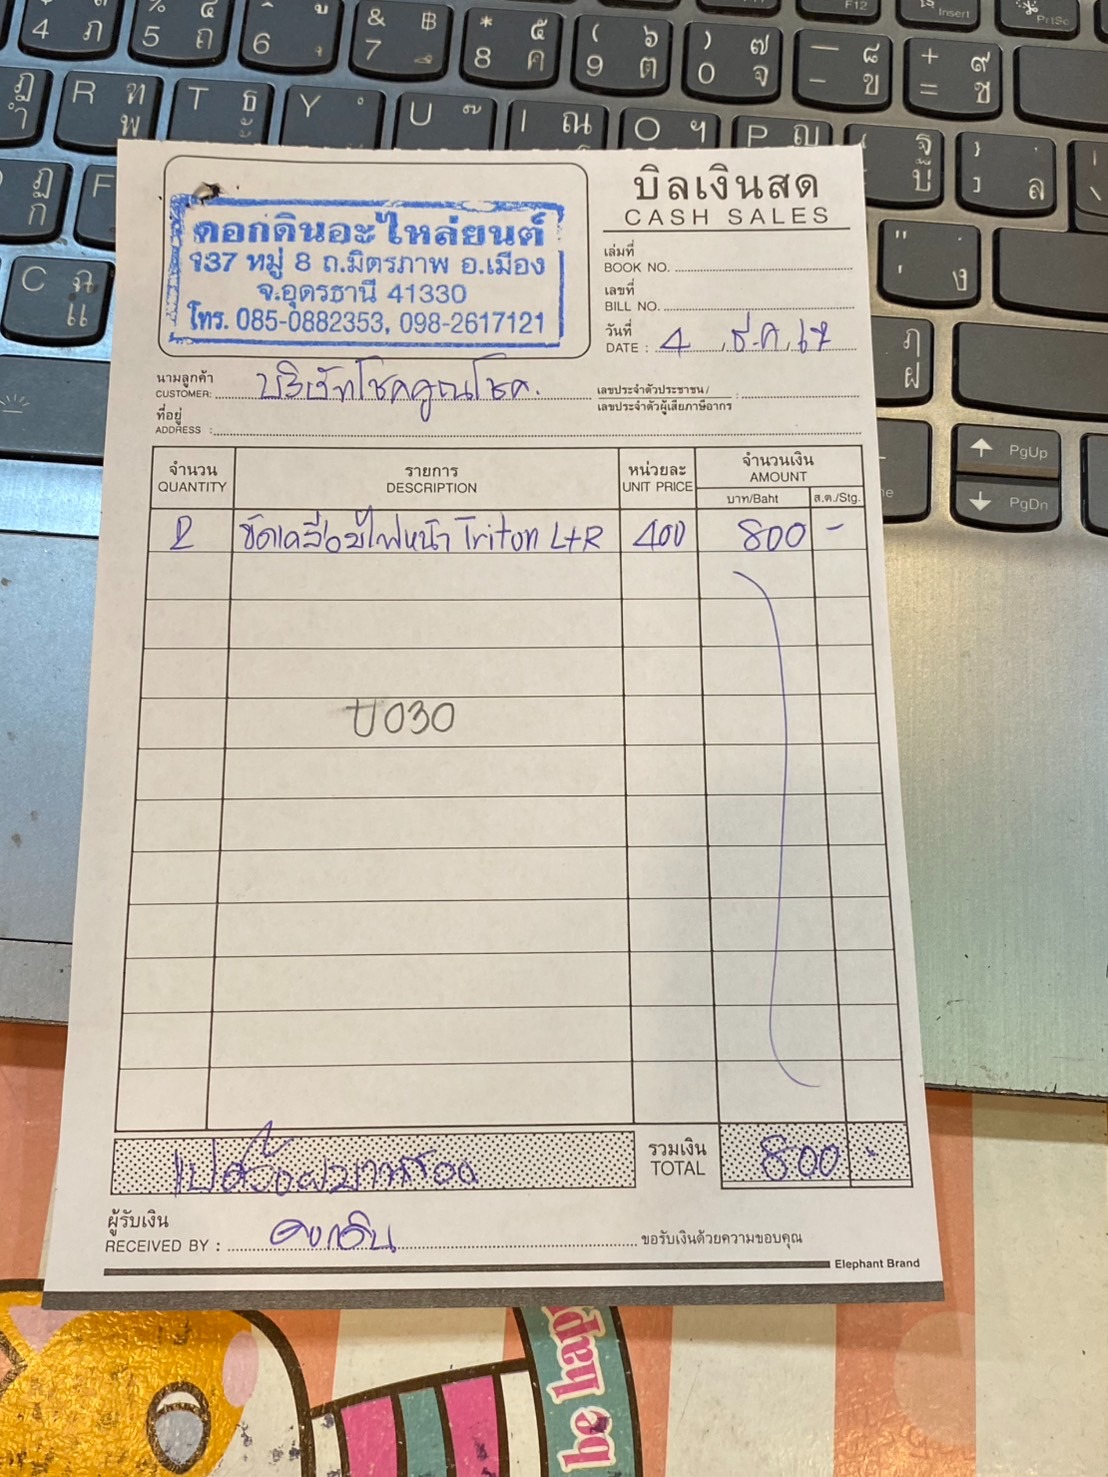 4 ภ 5 ถ 6 & ฿ 7 * ๕ 8 ค ( ๖ 9 ต ) ๗ 0 จ — ๘ - ข + ๙ = ช
F12 Insert PrtSc
R ฑ พ T ธ Y U I ณ O ฯ P ญ ฐ บ ล
ฏ ก F
C ฉ แ " ' ง
ภ ฝ
PgUp
PgDn
ดอกดินอะไหล่ยนต์
137 หมู่ 8 ถ.มิตรภาพ อ.เมือง
จ.อุดรธานี 41330
โทร. 085-0882353, 098-2617121
บิลเงินสด
CASH SALES
เล่มที่
BOOK NO.
เลขที่
BILL NO.
วันที่
DATE : 4 ธ.ค. 67
นามลูกค้า
CUSTOMER: บริษัทโชคคูณโชค.
เลขประจำตัวประชาชน/
เลขประจำตัวผู้เสียภาษีอากร :
ที่อยู่
ADDRESS :
จำนวน รายการ หน่วยละ จำนวนเงิน
QUANTITY DESCRIPTION UNIT PRICE AMOUNT
บาท/Baht ส.ต./Stg.
2 ขัดเคลือบไฟหน้า Triton L+R 400 800 -
ប030
รวมเงิน
TOTAL 800 -
ผู้รับเงิน
RECEIVED BY : ดอกดิน ขอรับเงินด้วยความขอบคุณ
Elephant Brand
be hap